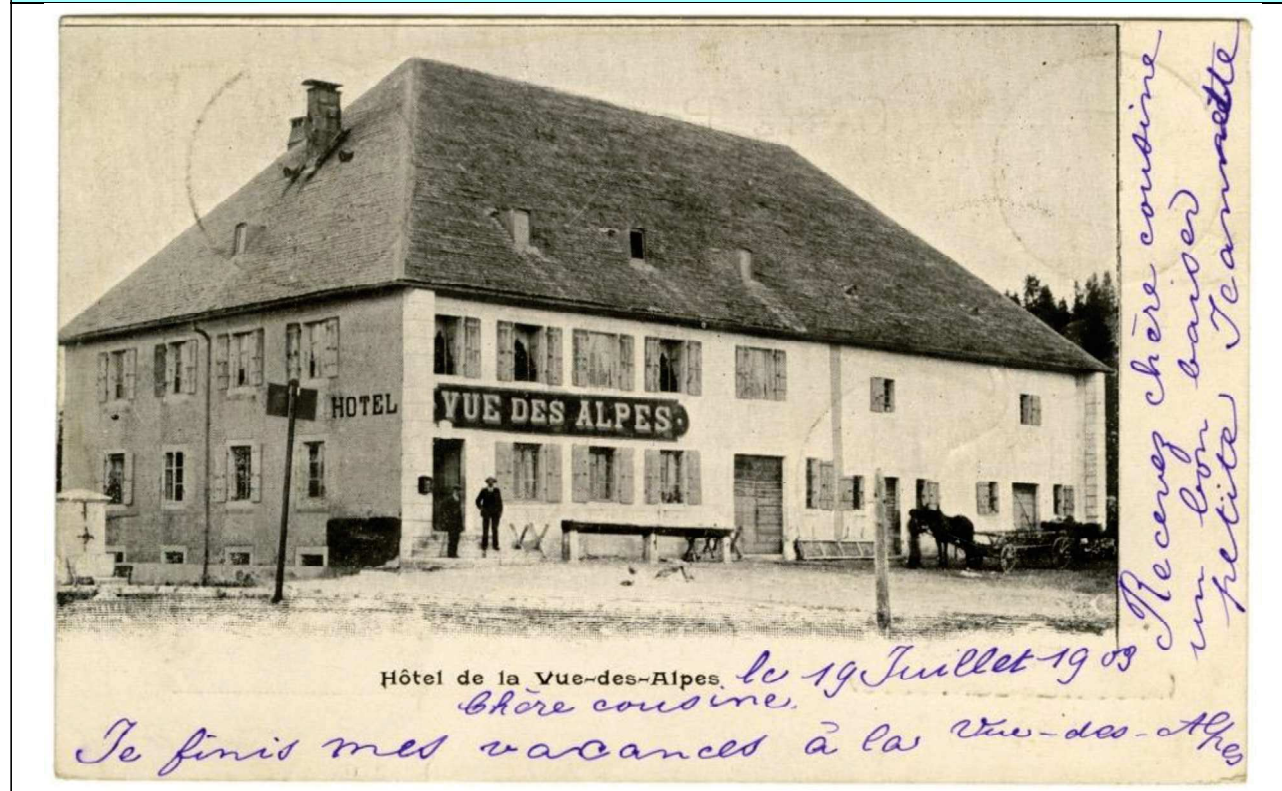 HOTEL
VUE DES ALPES
Hôtel de la Vue-des-Alpes
le 19 Juillet 1903
Chère cousine.
Je finis mes vacances à la Vue-des-Alpes
Recevez chère cousine
un bon baiser
petite Jeannette